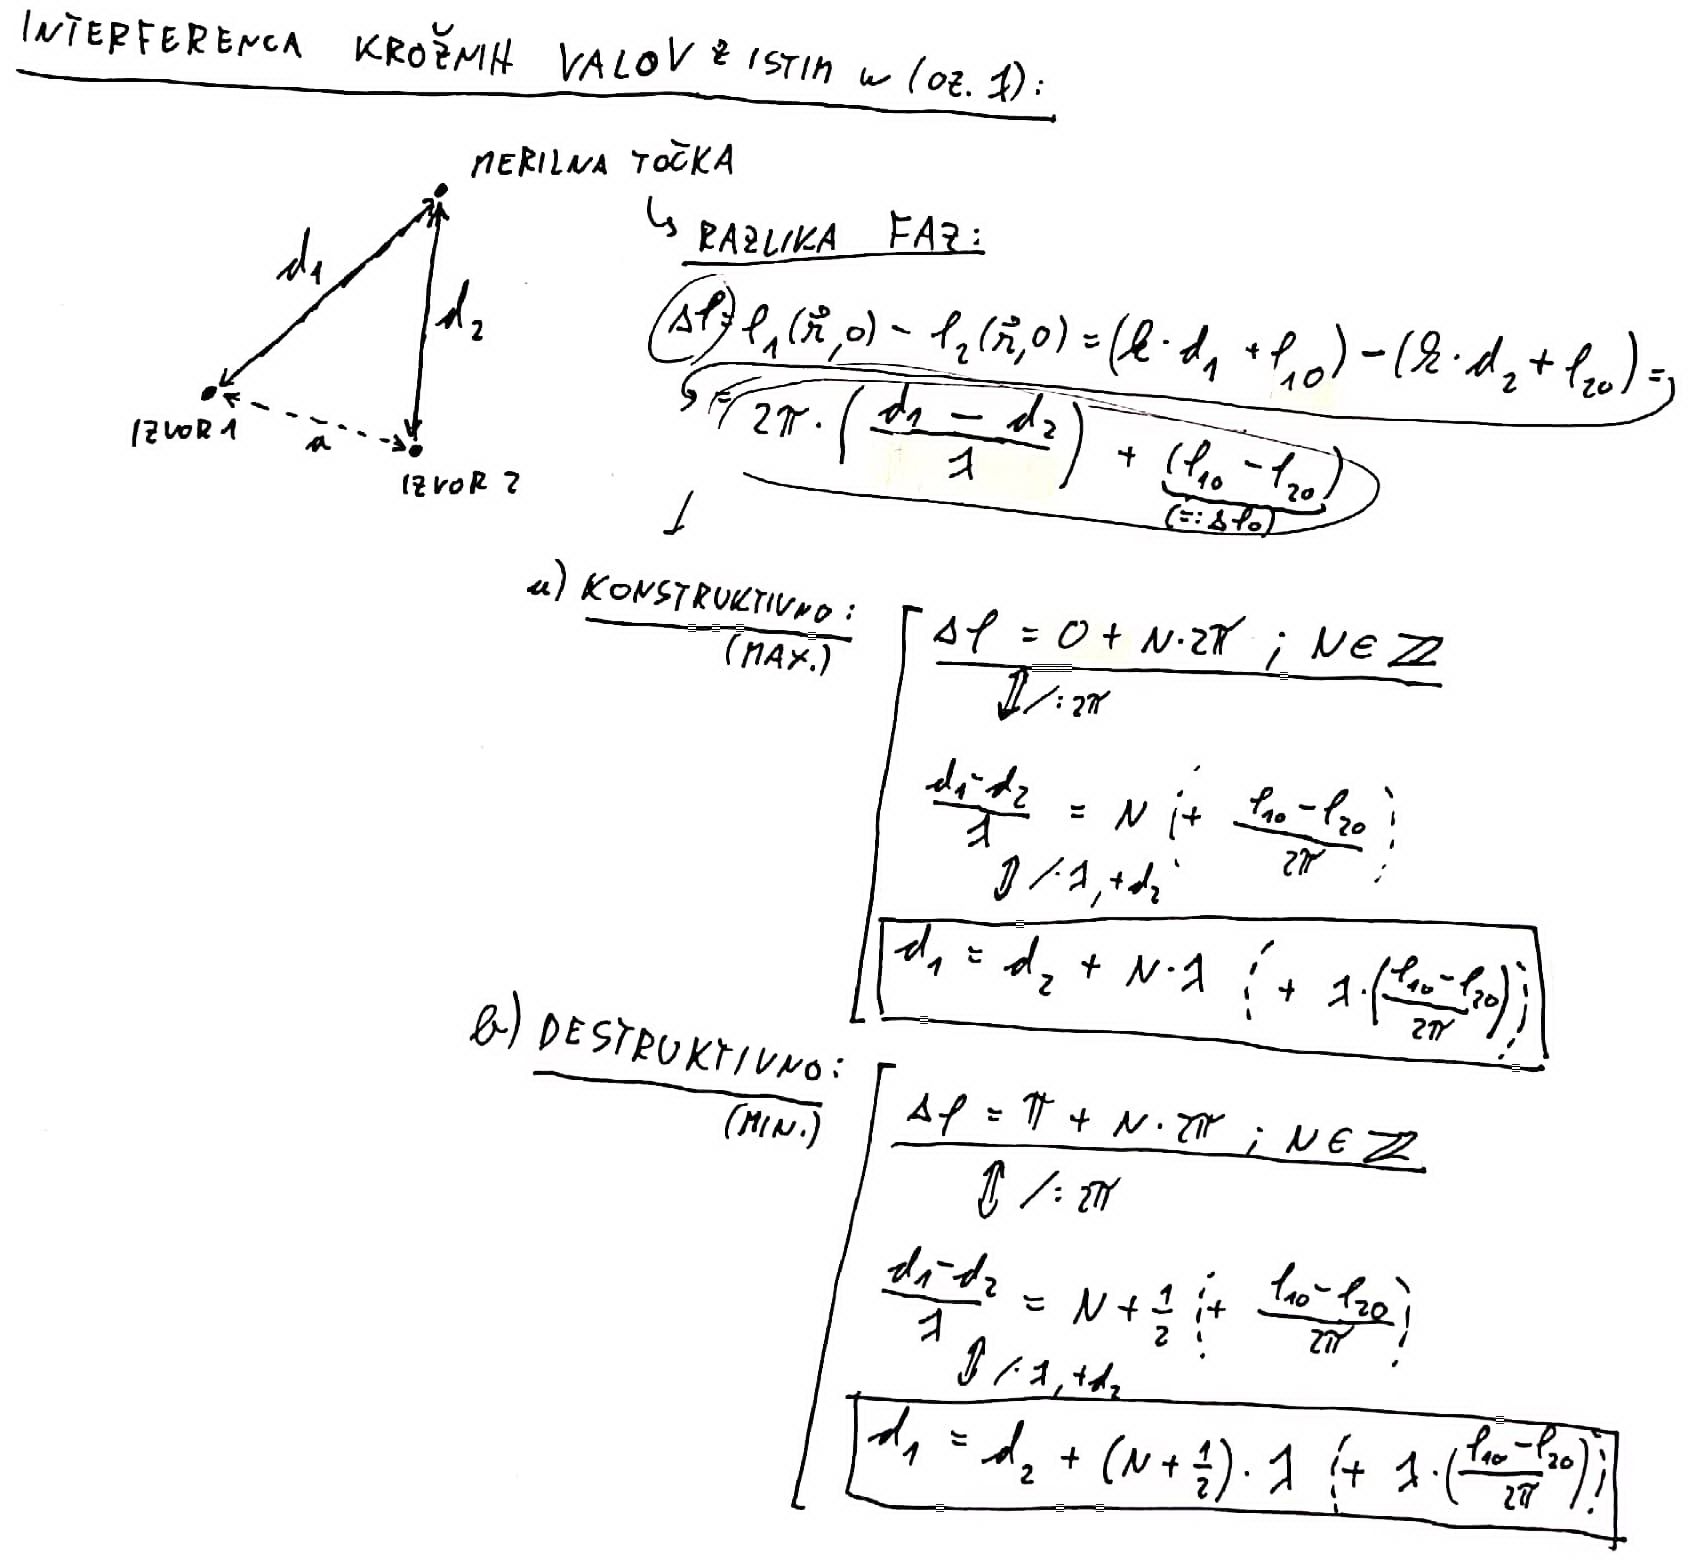 INTERFERENCA KROŽNIH VALOV Z ISTIM ω (OZ. λ):
MERILNA TOČKA
↳ RAZLIKA FAZ:
d₁
d₂
IZVOR 1
a
IZVOR 2
Δφ = φ₁(r⃗,0) - φ₂(r⃗,0) = (k·d₁ + φ₁₀) - (k·d₂ + φ₂₀) =
= 2π·((d₁ - d₂)/λ) + (φ₁₀ - φ₂₀)
(=: Δφ₀)
a) KONSTRUKTIVNO:
(MAX.)
Δφ = 0 + N·2π ; N ∈ ℤ
⇕ /:2π
(d₁-d₂)/λ = N (+ (φ₁₀-φ₂₀)/2π)
⇕ /·λ, +d₂
d₁ = d₂ + N·λ (+ λ·((φ₁₀-φ₂₀)/2π))
b) DESTRUKTIVNO:
(MIN.)
Δφ = π + N·2π ; N ∈ ℤ
⇕ /:2π
(d₁-d₂)/λ = N + 1/2 (+ (φ₁₀-φ₂₀)/2π)
⇕ /·λ, +d₂
d₁ = d₂ + (N + 1/2)·λ (+ λ·((φ₁₀-φ₂₀)/2π))